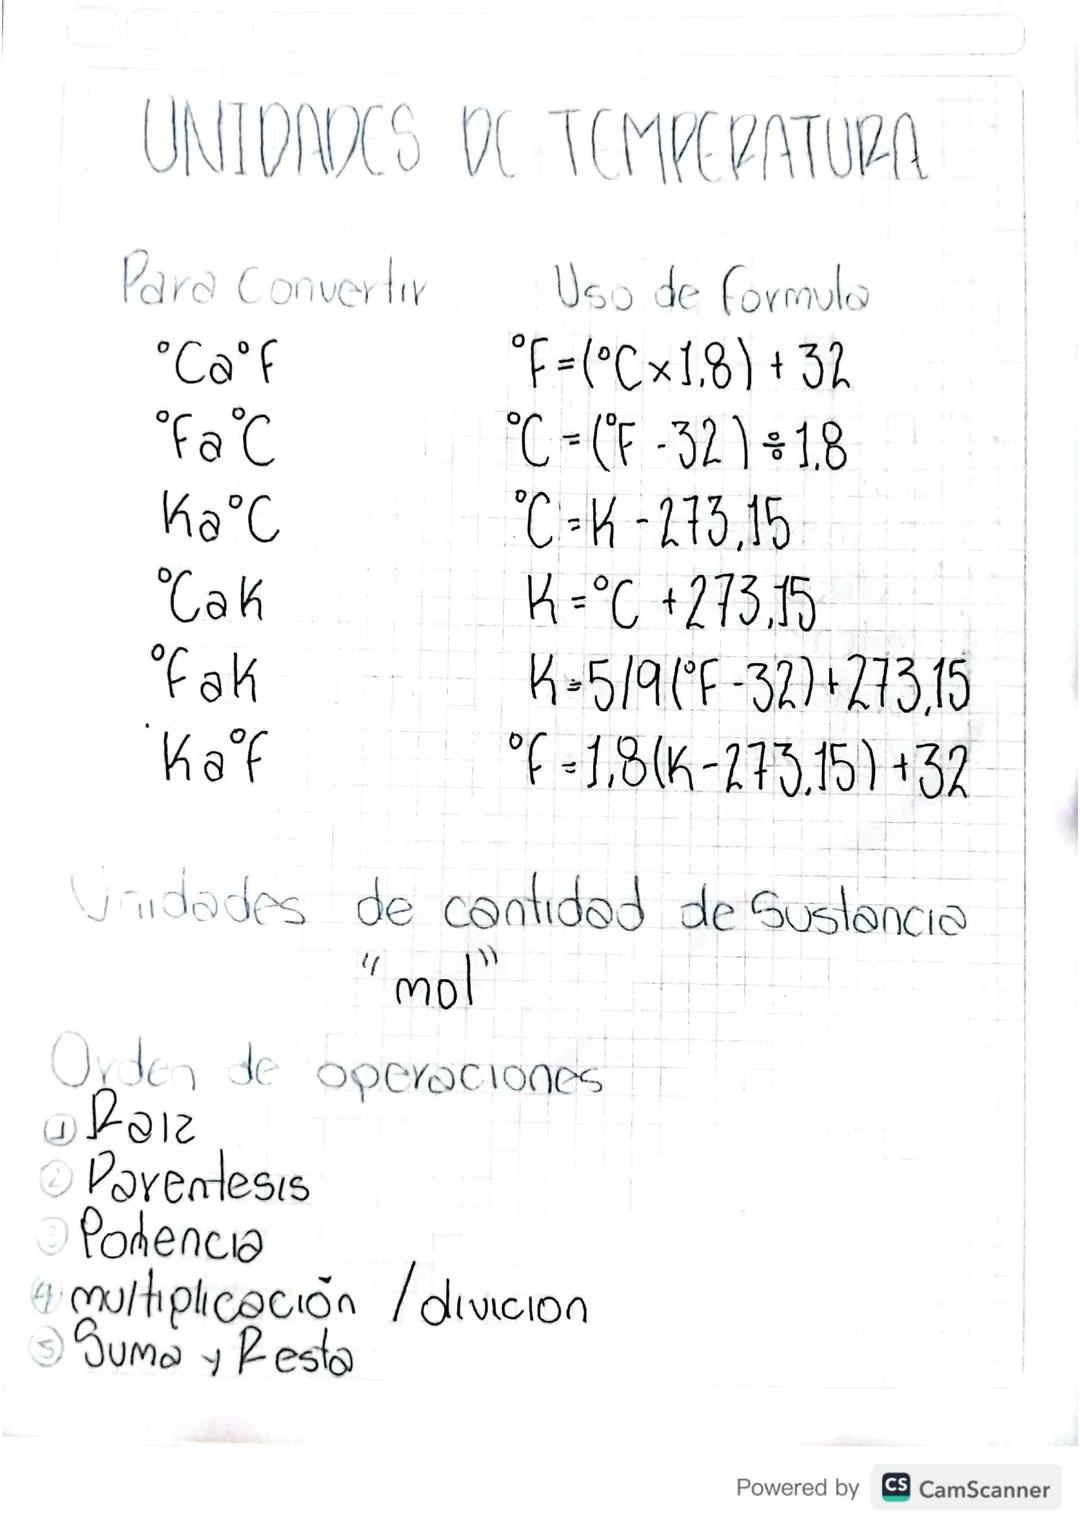 UNIDADES DE TEMPERATURA
Para Convertir Uso de formula
°C a °F °F=(°C×1,8) + 32
°F a °C °C=(°F-32) ÷ 1,8
K a °C °C=K-273,15
°C a K K=°C +273,15
°F a K K=5/9(°F-32)+273,15
K a °F °F=1,8(K-273,15)+32
Unidades de cantidad de Sustancia
"mol"
Orden de operaciones
① Raiz
② Parentesis
③ Potencia
④ multiplicación / divicion
⑤ Suma y Resta
Powered by CS CamScanner